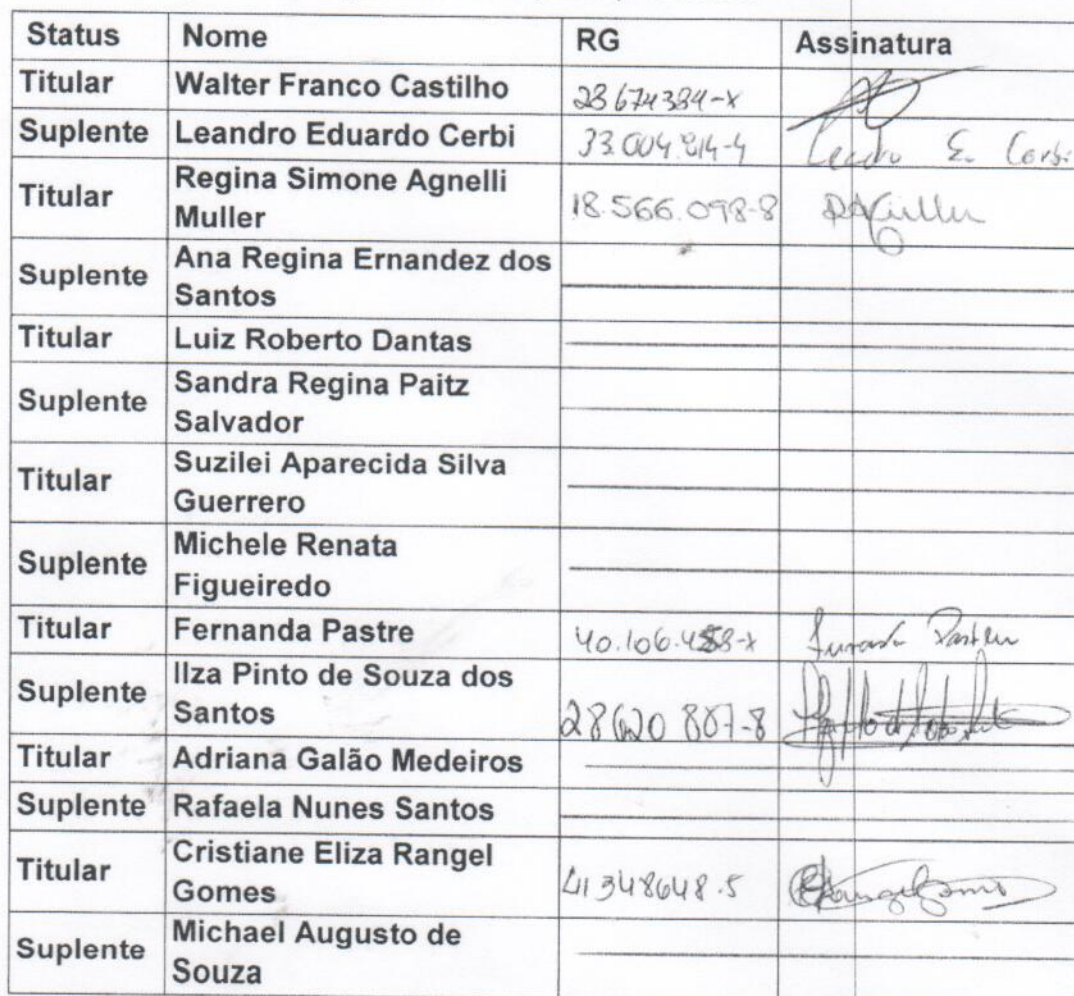 Status Nome RG Assinatura
Titular Walter Franco Castilho 23674384-x
Suplente Leandro Eduardo Cerbi 33.004.214-4 Leandro E. Cerbi
Titular Regina Simone Agnelli
Muller 18.566.098-8 RAMuller
Suplente Ana Regina Ernandez dos
Santos
Titular Luiz Roberto Dantas
Suplente Sandra Regina Paitz
Salvador
Titular Suzilei Aparecida Silva
Guerrero
Suplente Michele Renata
Figueiredo
Titular Fernanda Pastre Fernanda Pastre
Suplente Ilza Pinto de Souza dos
Santos 28620807-8
Titular Adriana Galão Medeiros
Suplente Rafaela Nunes Santos
Titular Cristiane Eliza Rangel
Gomes 41348648.5
Suplente Michael Augusto de
Souza